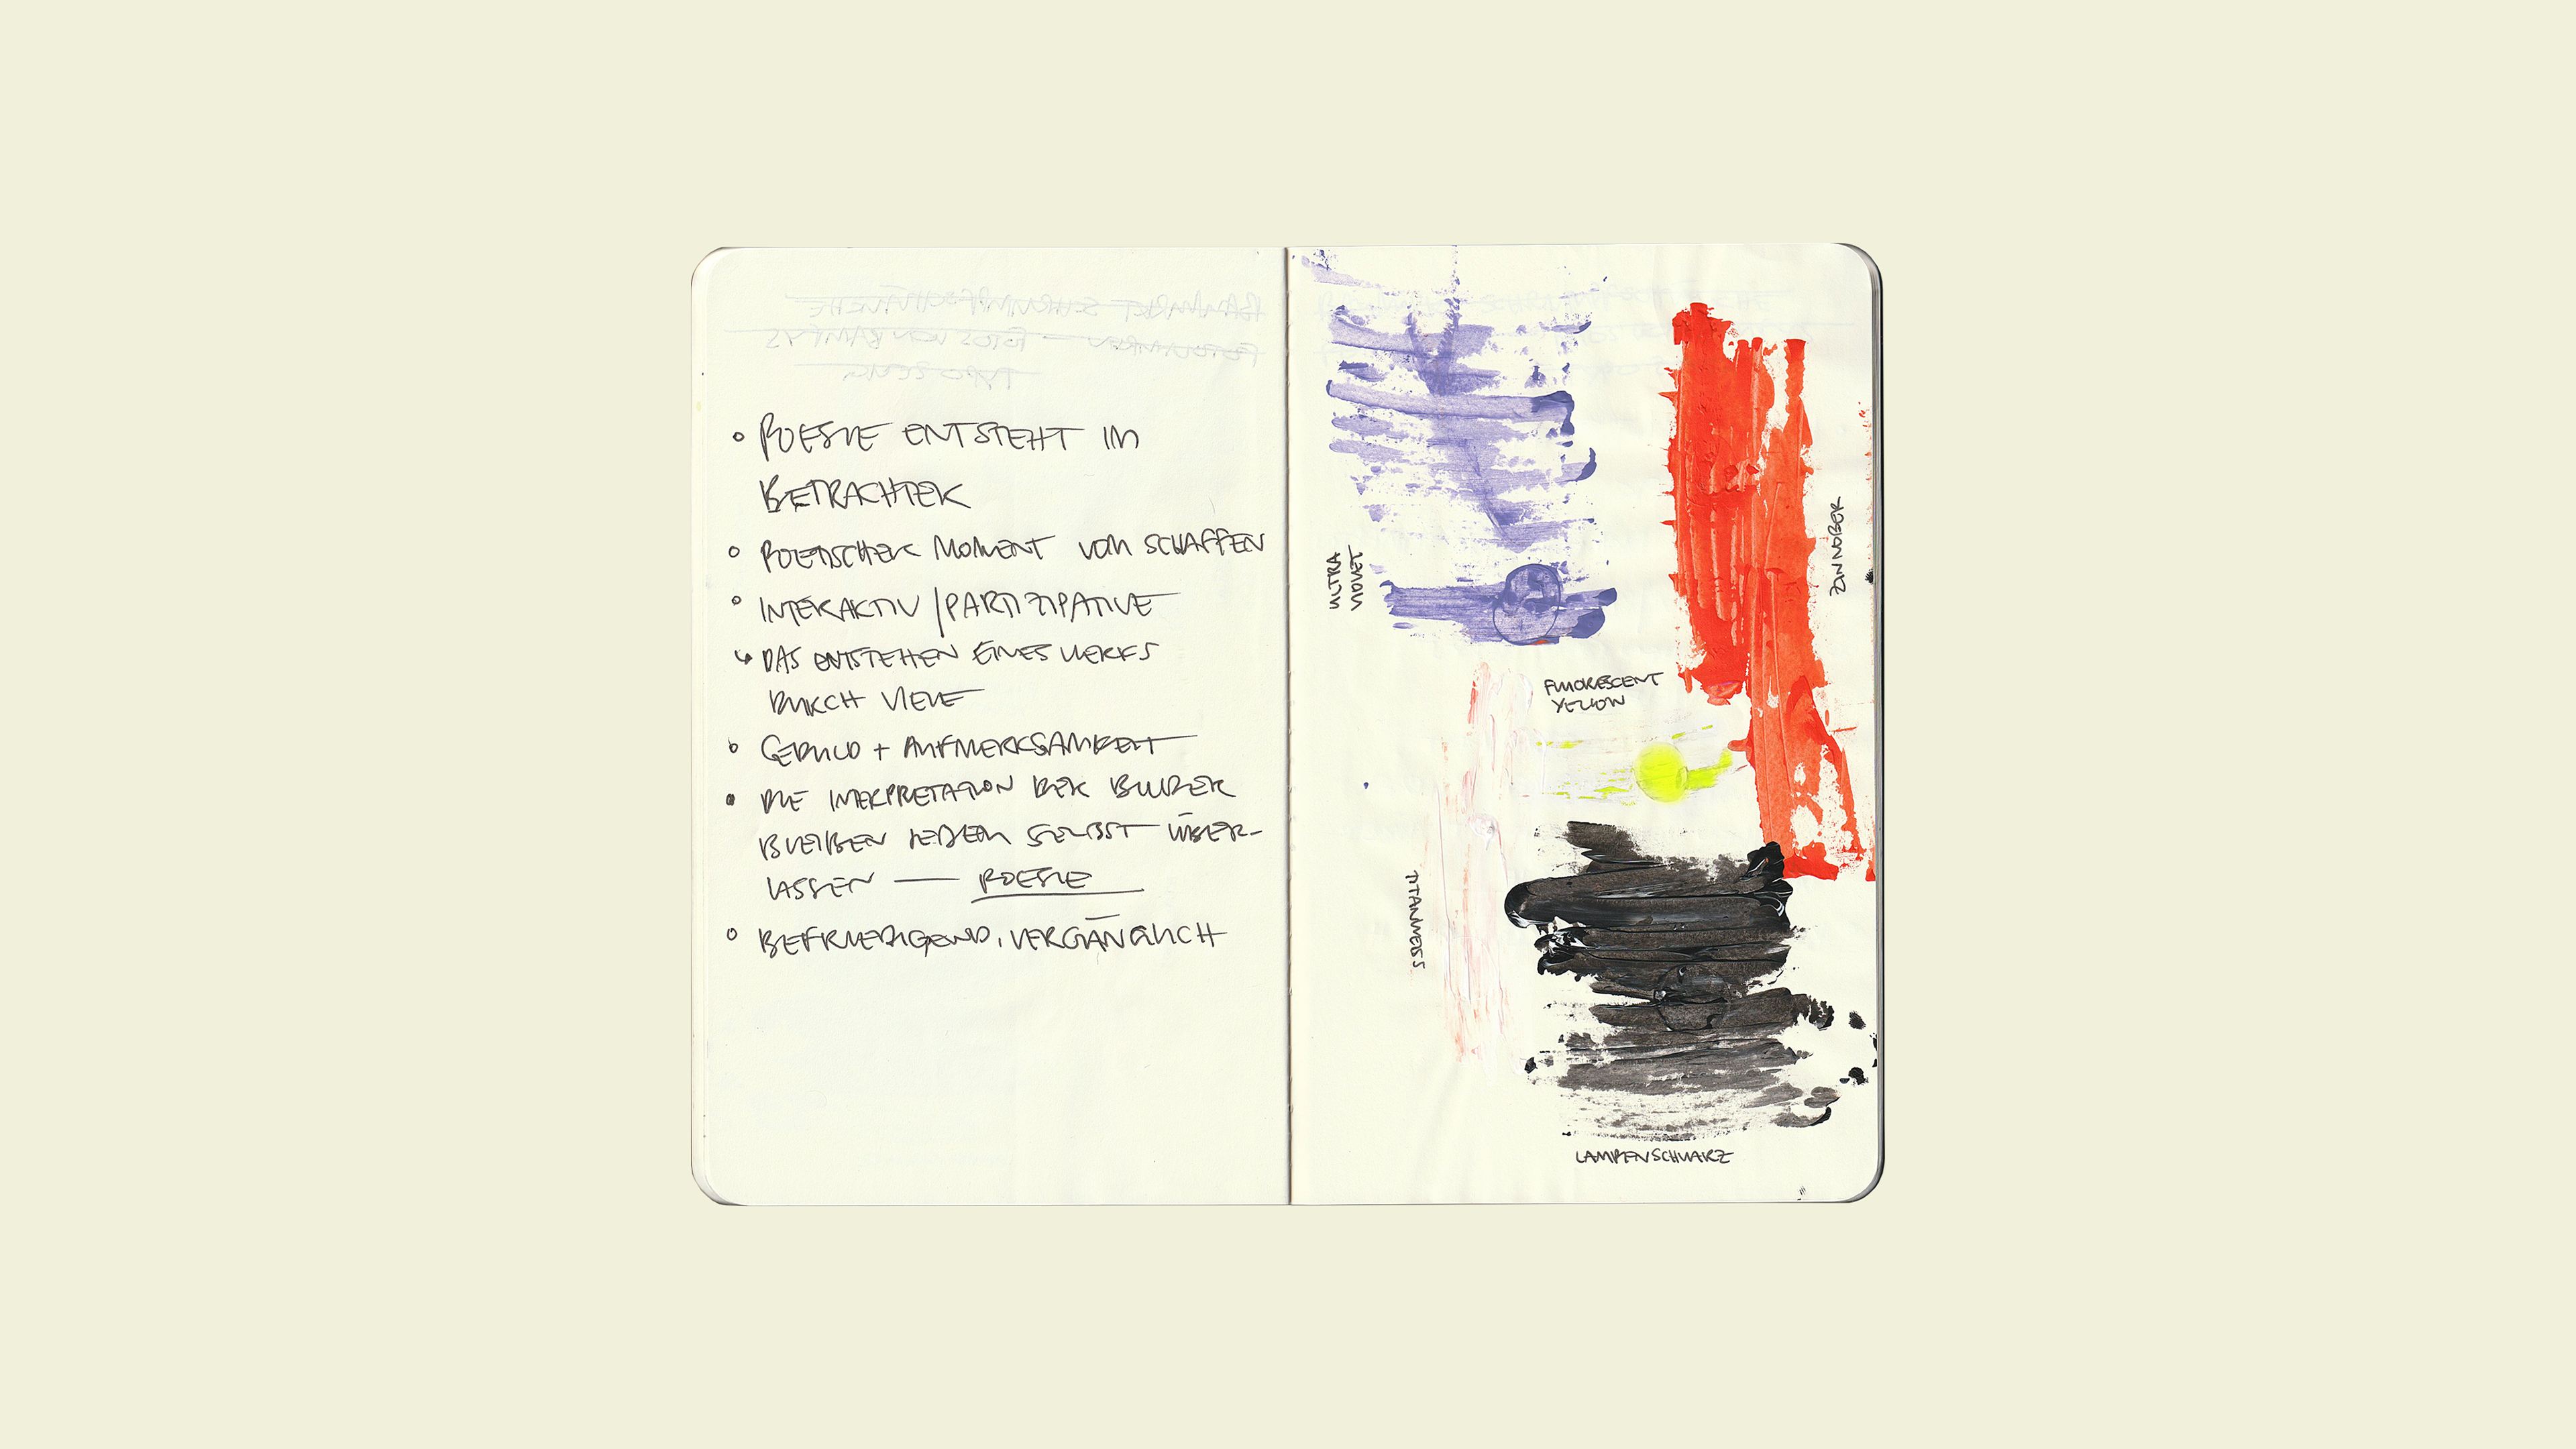 POESIE ENTSTEHT IM
BETRACHTER
POETISCHER MOMENT VOM SCHAFFEN
INTERAKTIV / PARTIZIPATIVE
↳ DAS ENTSTEHEN EINES WERKS
DURCH VIELE
GEDULD + AUFMERKSAMKEIT
DIE INTERPRETATION DER BILDER
BLEIBEN JEDEM SELBST ÜBER-
LASSEN — POESIE
BEFRIEDIGEND, VERGÄNGLICH
ULTRA
VIOLET
ZINNOBER
FLUORESCENT
YELLOW
TITANWEISS
LAMPENSCHWARZ